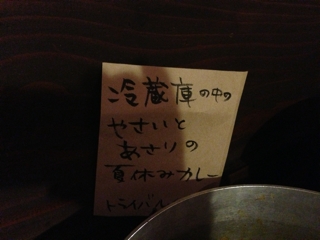 冷蔵庫の中の
やさいと
あさりの
夏休みカレー
トライバル